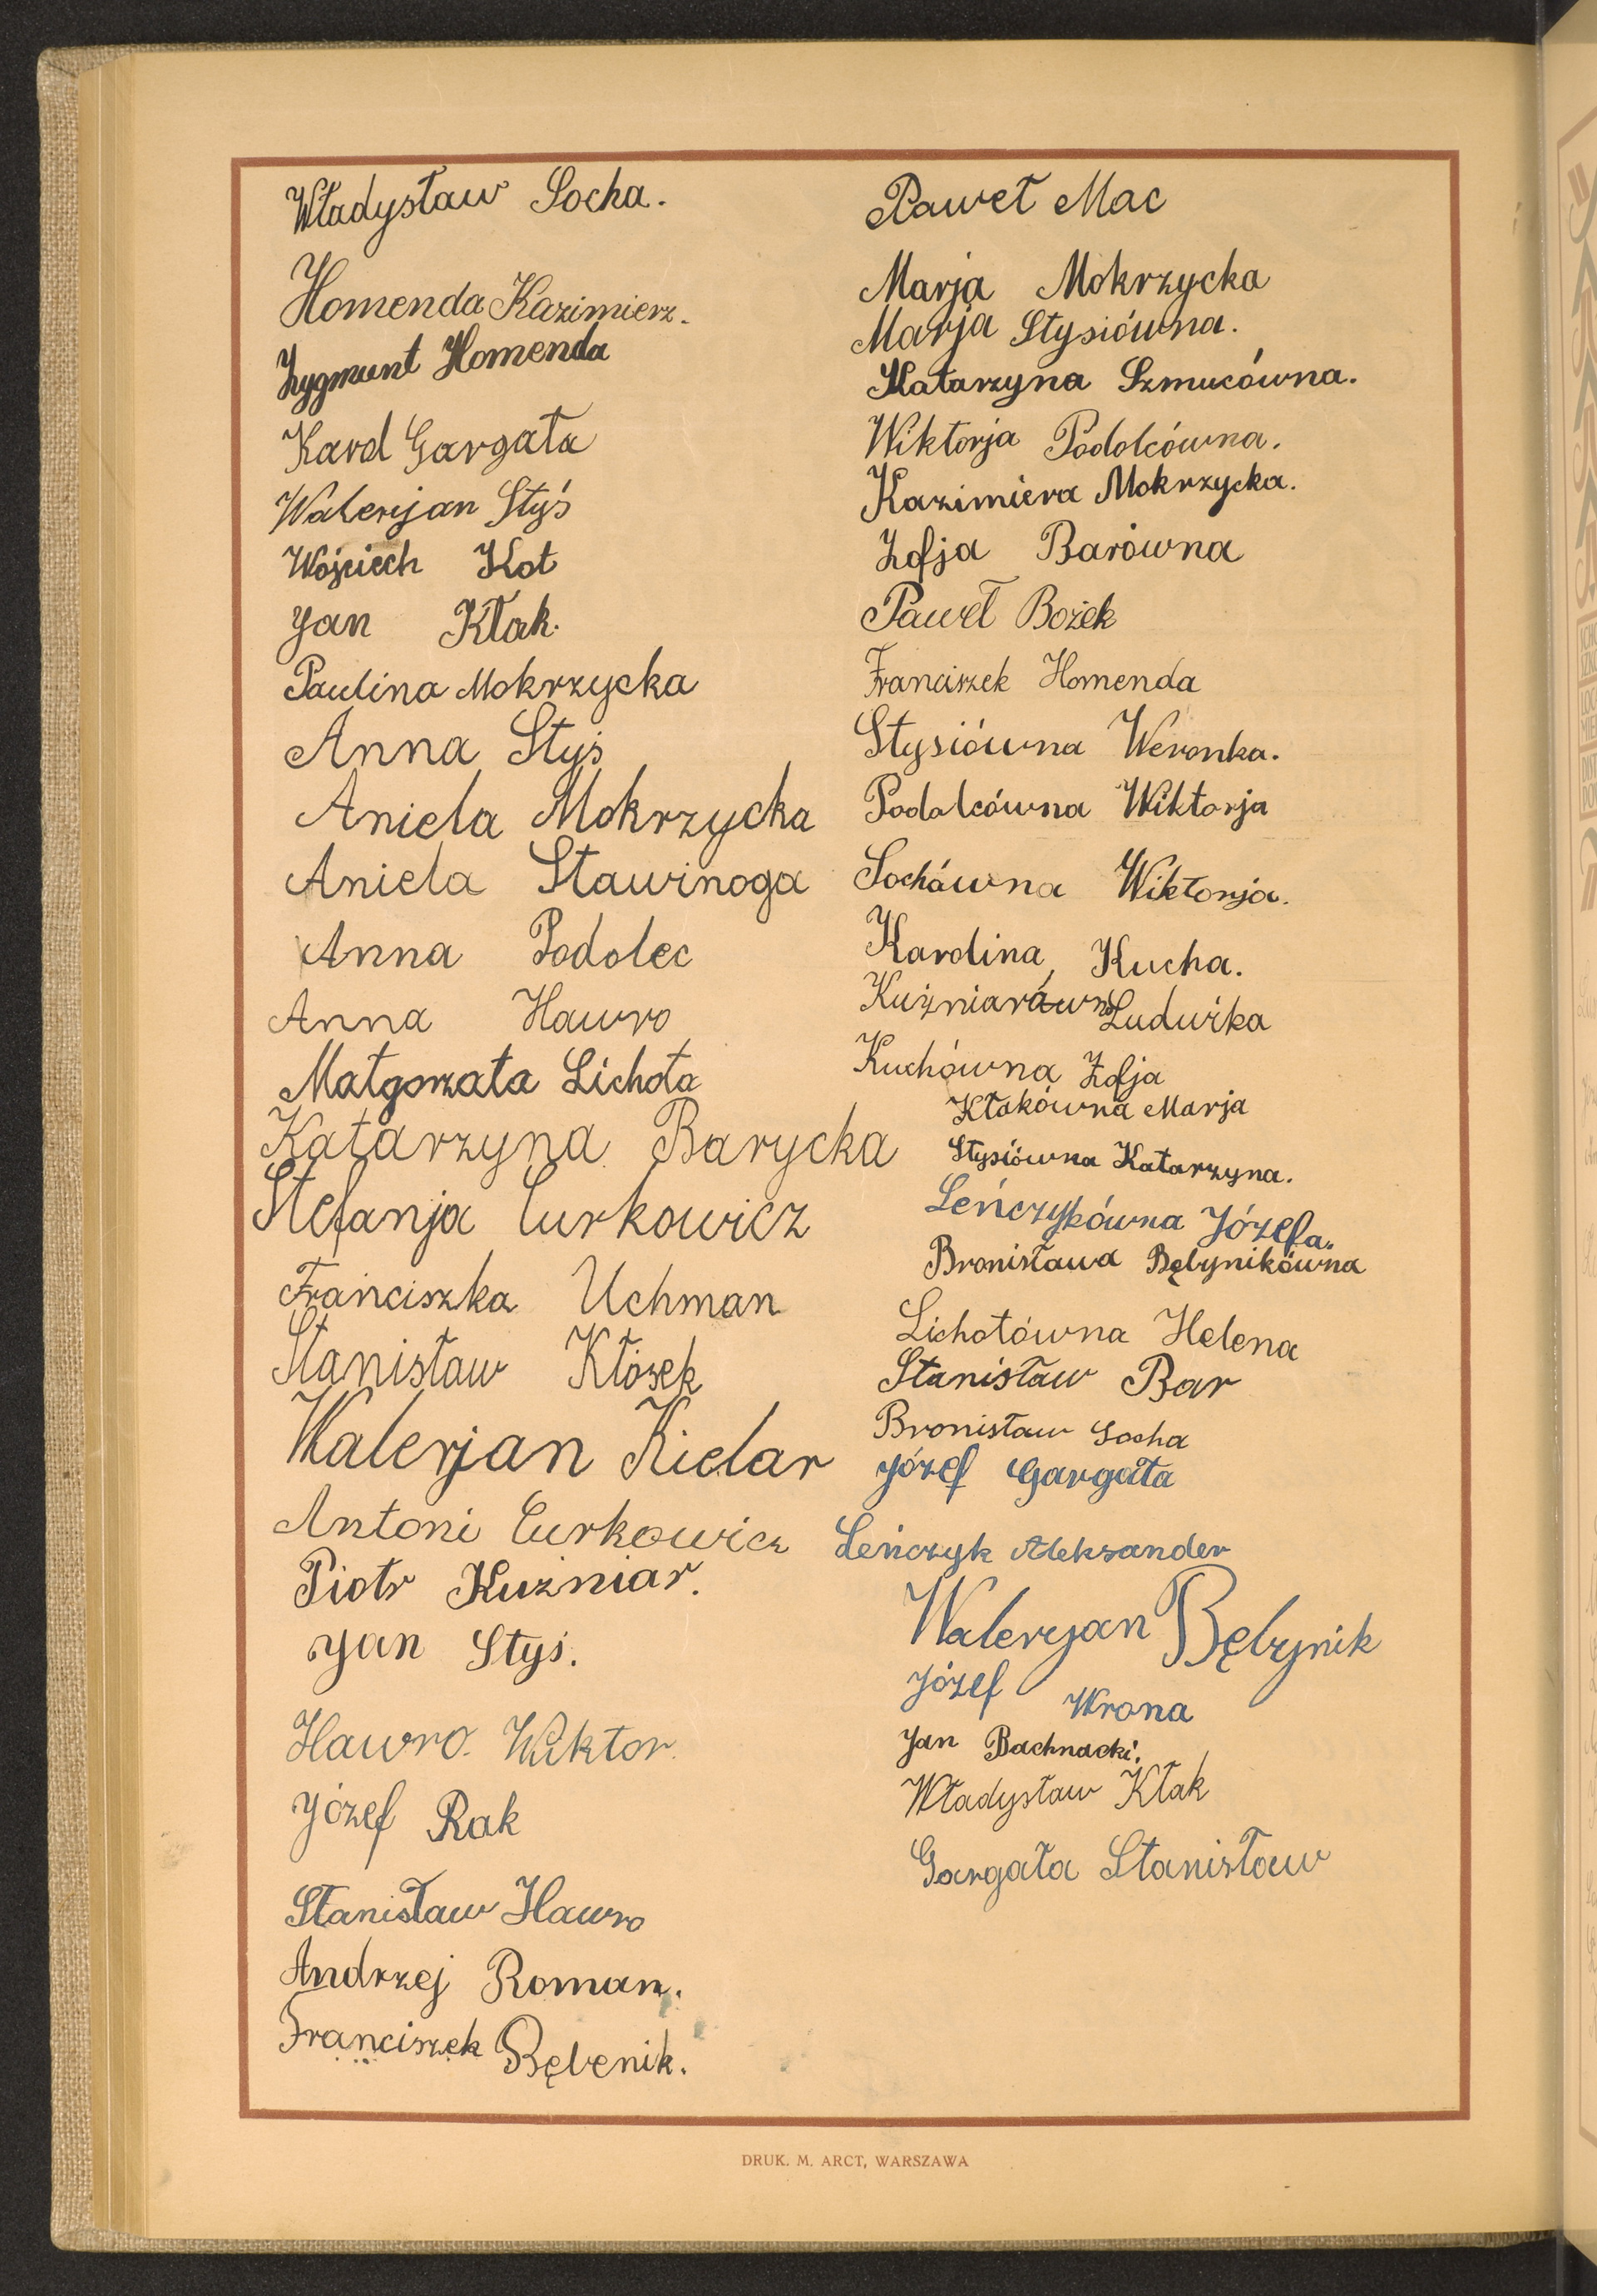 Władysław Socha.
Homenda Kazimierz.
Zygmunt Homenda
Karol Gargała
Walerjan Styś
Wojciech Kot
Jan Kłak.
Paulina Mokrzycka
Anna Styś
Aniela Mokrzycka
Aniela Stawinoga
Anna Podolec
Anna Hawro
Małgorzata Lichota
Katarzyna Barycka
Stefanja Curkowicz
Franciszka Uchman
Stanisław Kłosek
Walerjan Kielar
Antoni Curkowicz
Piotr Kuźniar.
Jan Styś.
Hawro. Wiktor.
Józef Rak
Stanisław Hawro
Andrzej Roman.
Franciszek Bębenik.
Paweł Mac
Marja Mokrzycka
Marja Stysiówna.
Katarzyna Szmucówna.
Wiktorja Podolcówna.
Kazimiera Mokrzycka.
Zofja Barówna
Paweł Bożek
Franciszek Homenda
Stysiówna Weronka.
Podolcówna Wiktorja
Sochówna Wiktorja.
Karolina Kucha.
Kuźniarówna Ludwika
Kuchówna Zofja
Kłakówna Marja
Stysiówna Katarzyna.
Leńczykówna Józefa.
Bronisława Bębynikówna
Lichotówna Helena
Stanisław Bar
Bronisław Socha
Józef Gargała
Leńczyk Aleksander
Waleryan Bębynik
Józef Wrona
Jan Bachnacki.
Władysław Kłak
Gargała Stanisław
DRUK. M. ARCT, WARSZAWA